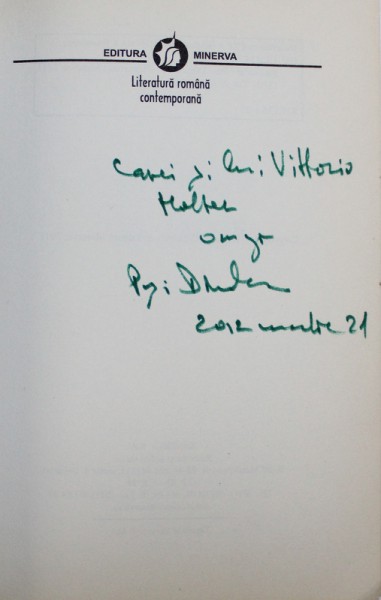 EDITURA MINERVA
Literatură română
contemporană
și lui Vittorio
Holtier
omagiu
2012 martie 21